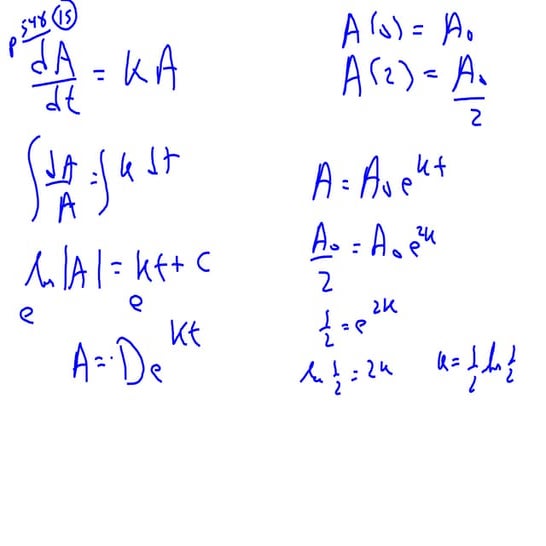 p 548 (15)
dA/dt = kA
∫ dA/A = ∫ k dt
ln|A| = kt + C
e e
A = De^kt
A(0) = A₀
A(2) = A₀/2
A = A₀e^kt
A₀/2 = A₀e^2k
1/2 = e^2k
ln 1/2 = 2k k = 1/2 ln 1/2